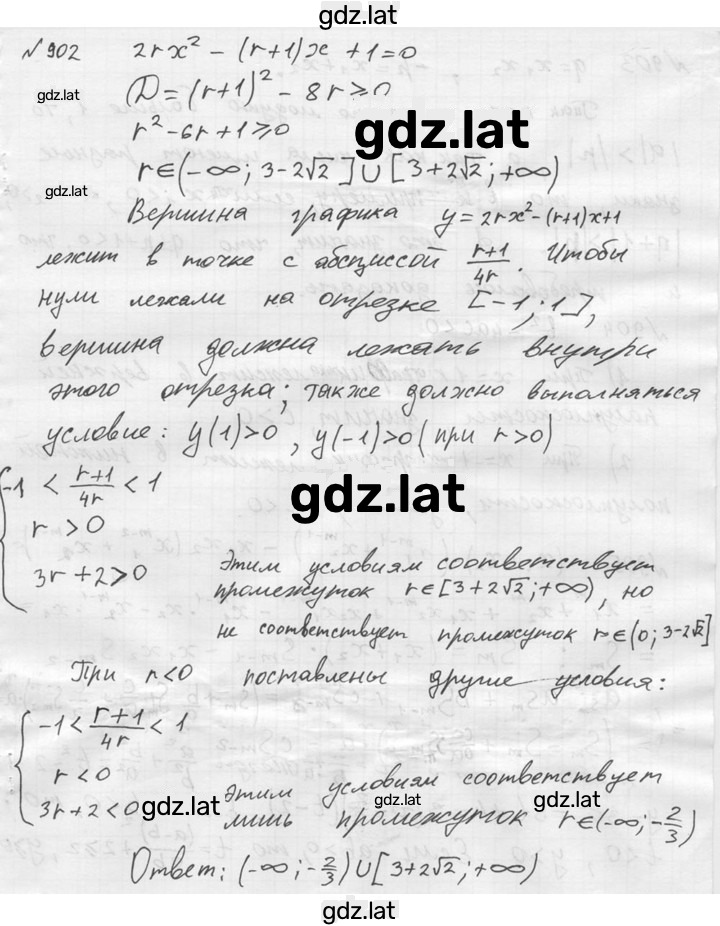 gdz.lat
№902 2rx² − (r+1)x + 1 = 0
gdz.lat
D = (r+1)² − 8r ≥ 0
r² − 6r + 1 ≥ 0
gdz.lat
r ∈ (−∞; 3−2√2] ∪ [3+2√2; +∞)
gdz.lat
Вершина графика y = 2rx² − (r+1)x + 1
лежит в точке с абсциссой (r+1)/4r. Чтобы
нули лежали на отрезке [−1; 1],
вершина должна лежать внутри
этого отрезка; также должно выполняться
условие: y(1)>0, y(−1)>0 (при r>0)
−1 < (r+1)/4r < 1
gdz.lat
r > 0
3r + 2 > 0
Этим условиям соответствует
промежуток r ∈ [3+2√2; +∞), но
не соответствует промежуток r ∈ (0; 3−2√2]
При r<0 поставлены другие условия:
−1 < (r+1)/4r < 1
r < 0
3r + 2 < 0
gdz.lat
Этим условиям соответствует
gdz.lat
gdz.lat
лишь промежуток r ∈ (−∞; −2/3)
Ответ: (−∞; −2/3) ∪ [3+2√2; +∞)
gdz.lat